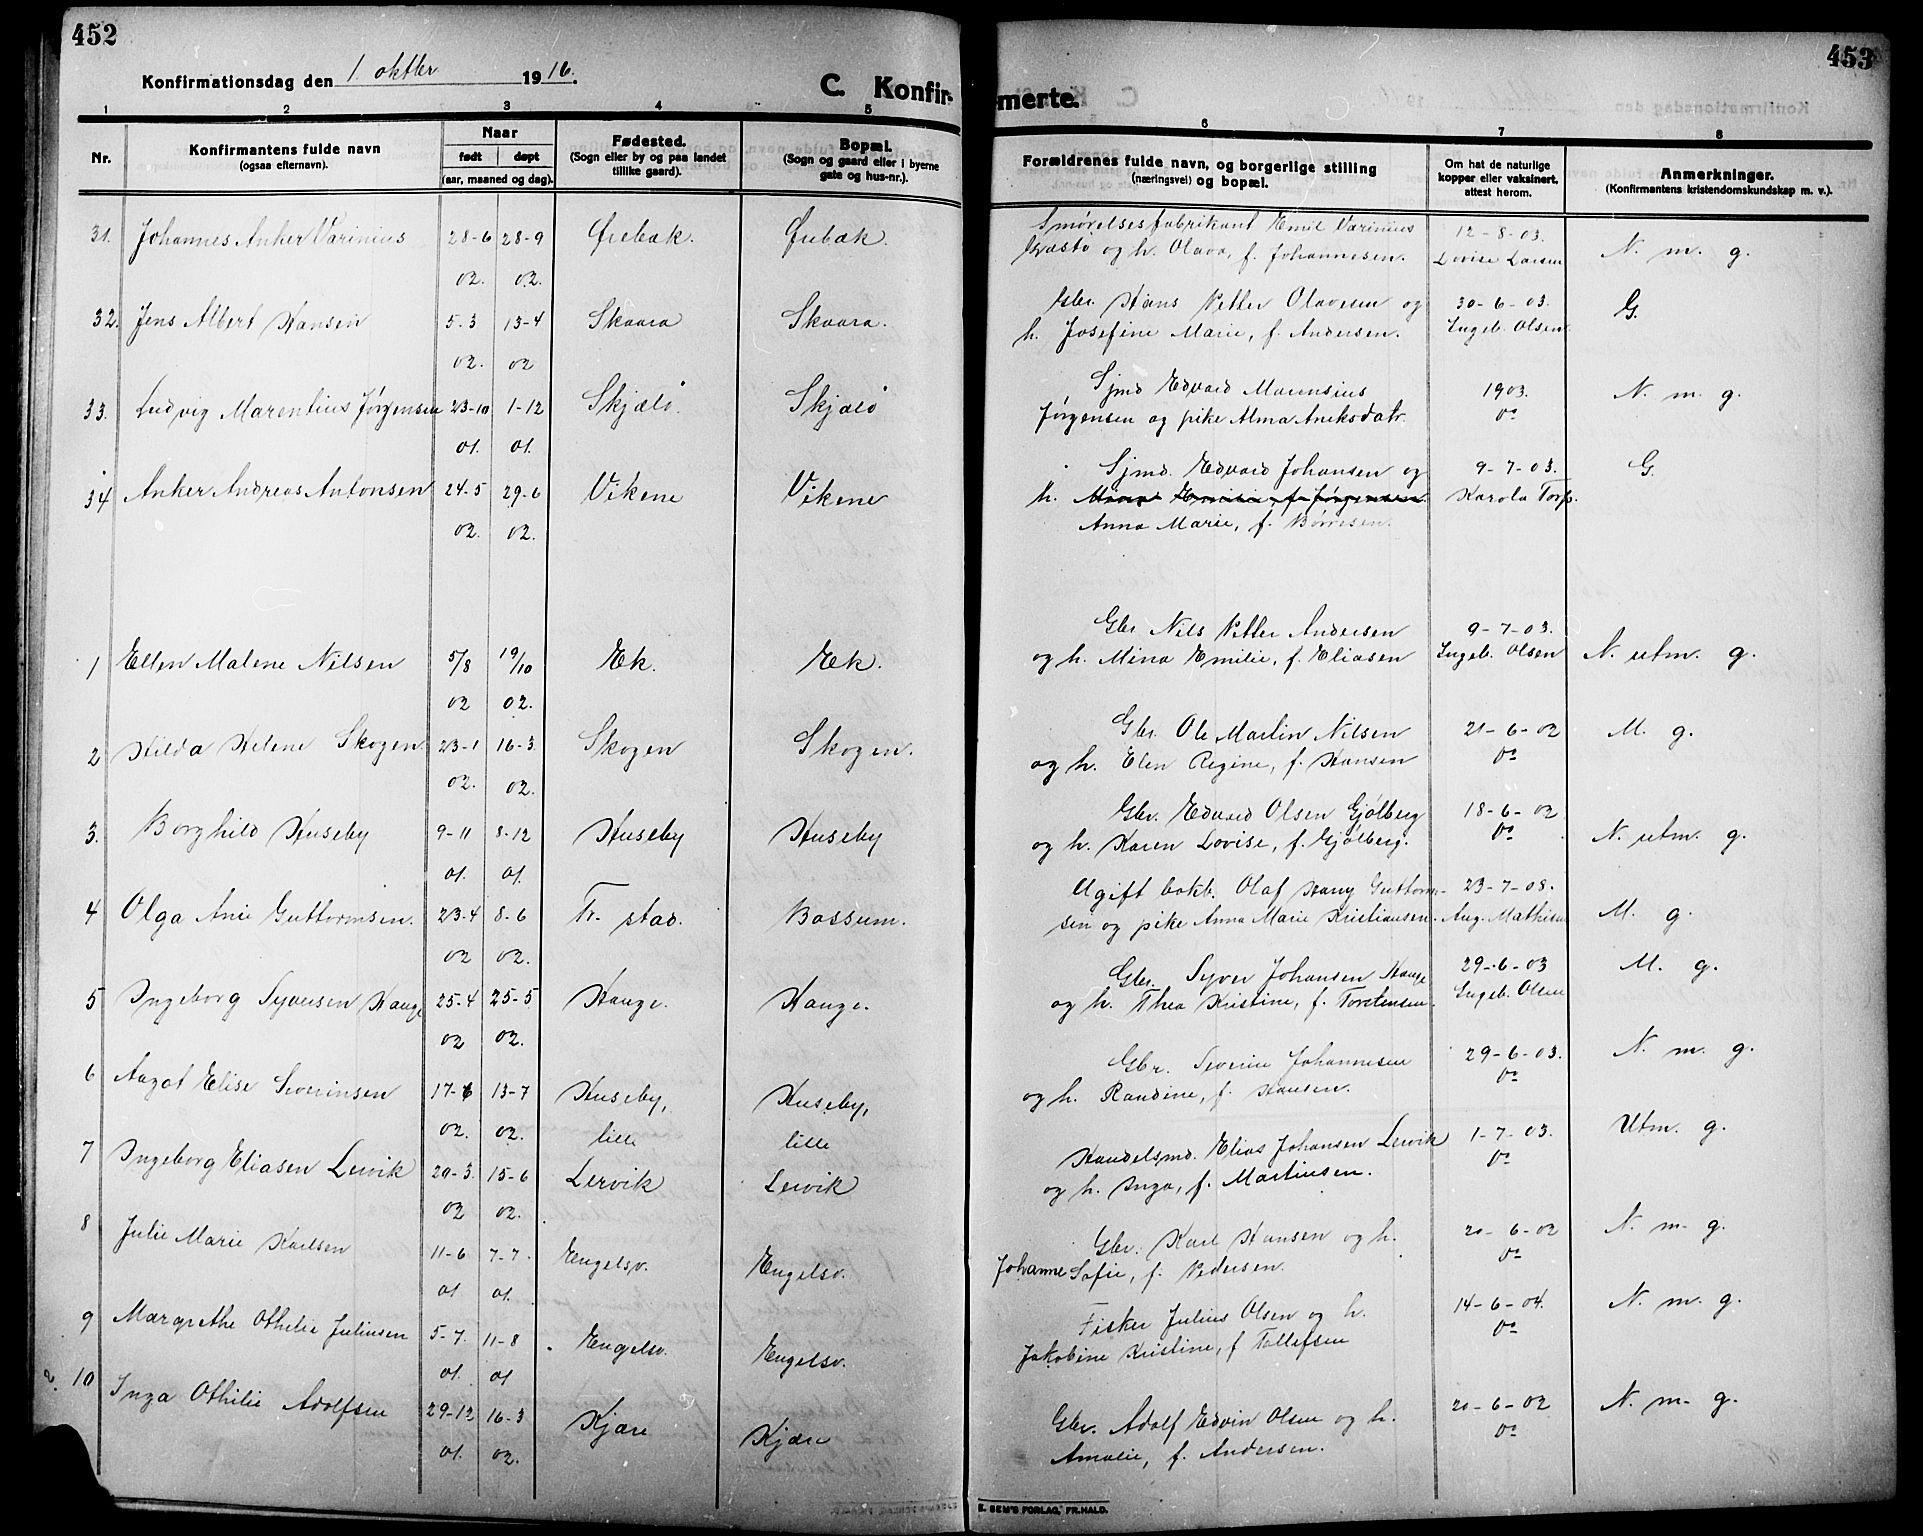 452
Konfirmationsdag den 1. oktber 1916.
C. Konfir-
1 2 3 4 5
Nr.
Konfirmantens fulde navn
(ogsaa efternavn).
Naar
født døpt
(aar, maaned og dag).
Fødested.
(Sogn eller by og paa landet
tillike gaard).
Bopæl.
(Sogn og gaard eller i byerne
gate og hus-nr.).
31. Johannes Anker Varinius 28-6 28-9 Ørebæk. Ørebæk.
02. 02.
32. Jens Albert Hansen 5-3 13-4 Skaara Skaara.
02. 02
33. Ludvig Marentius Jørgensen 23-10 1-12 Skjælø. Skjælø
01. 01.
34 Anker Andreas Antonsen 24-5 29-6 Vikene Vikene
02. 02.
1 Ellen Malene Nilsen 5/8 19/10 Ek. Ek.
02 02.
2 Hilda Helene Skogen 23-1 16-3 Skogen Skogen.
02. 02.
3. Borghild Huseby 9-11 8-12 Huseby Huseby
01. 01.
4 Olga Anie Guttormsen. 23-4 8-6 Fr. stad. Bossum.
02 02.
5 Ingeborg Syversen Hauge 25-4 25-5 Hauge. Hauge.
02 02.
6 Aagot Elise Severinsen 17-6 13-7 Huseby, Huseby,
02. 02. lille lille
7 Ingeborg Eliasen Lervik 20-3 15-6 Lervik Lervik
02 02.
8 Julie Marie Karlsen 11-6 7-7 Engelsv. Engelsv.
01 01.
9 Margrethe Othilie Juliusen 5-7. 11-8 Engelsv. Engelsv.
01. 01
10 Inga Othilie Adolfsen 29-12 16-3 Kjære Kjære
01. 02.
453
merte.
6 7 8
Forældrenes fulde navn, og borgerlige stilling
(næringsvei) og bopæl.
Om hat de naturlige
kopper eller vaksinert,
attest herom.
Anmerkninger.
(Konfirmantens kristendomskundskap m. v.).
Smørelsesfabrikant Emil Varinius 12-8-03.
og h. Olava, f. Johannesen. Lovise Larsen N. m. g.
Gbr. Hans Petter Olavesen og 30-6-03. G.
h. Josefine Marie, f. Andersen. Ingeb. Olsen
Sjmd Edvard Marensius 1903. N. m. g.
Jørgensen og pike Alma do
Sjmd. Edvard Johansen og 9-7-03. G
h. Mina Emilie, f. Jørgensen Karola Torp.
Anna Marie, f. Børresen.
Gbr Nils Petter Andersen 9-7-03.
og h. Mina Emilie, f. Eliasen Ingeb. Olsen N. utm. g.
Gbr. Ole Martin Nilsen 21-6-02 M. g.
og h. Elen Regine, f. Hansen do
Gbr. Edvard Olsen Gjølberg 18-6-02
og h. Karen Lovise, f. Gjølberg. do N. utm. g.
Ugift bokb. Olaf Hany Guttorm- 23-7-08.
sen og pike Anna Marie Kristiansen. Aug. Mathisen M. g.
Gbr. Syver Johansen Hauge 29-6-03 M. g.
og h. Thea Kristine, f. Torstensen. Ingeb. Olsen
Gbr. Severin Johannesen 29-6-03. N. m. g.
og h. Randine, f. Hansen. do
Handelsmd. Elias Johansen Lervik 1-7-03. Utm. g.
og h. Inga, f. Martinsen. do
Gbr. Karl Hansen og h. 20-6-02 N. m. g.
Johanne Sofie, f. Pedersen. do
Fisker Julius Olsen og h. 14-6-04. N. m. g.
Jakobine Kristine, f Tollefsen do
Gbr. Adolf Edvin Olsen og h. 20-6-02 N. m. g.
Amalie, f. Andersen. do
E. SEM'S FORLAG, FR.HALD.